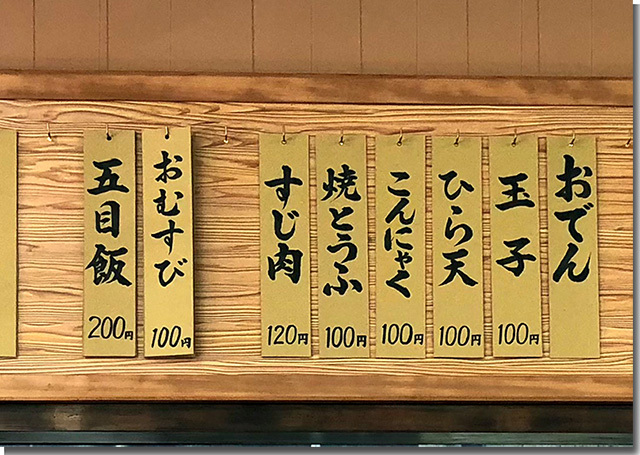 おでん
玉子
100円
ひら天
100円
こんにゃく
100円
焼とうふ
100円
すじ肉
120円
おむすび
100円
五目飯
200円